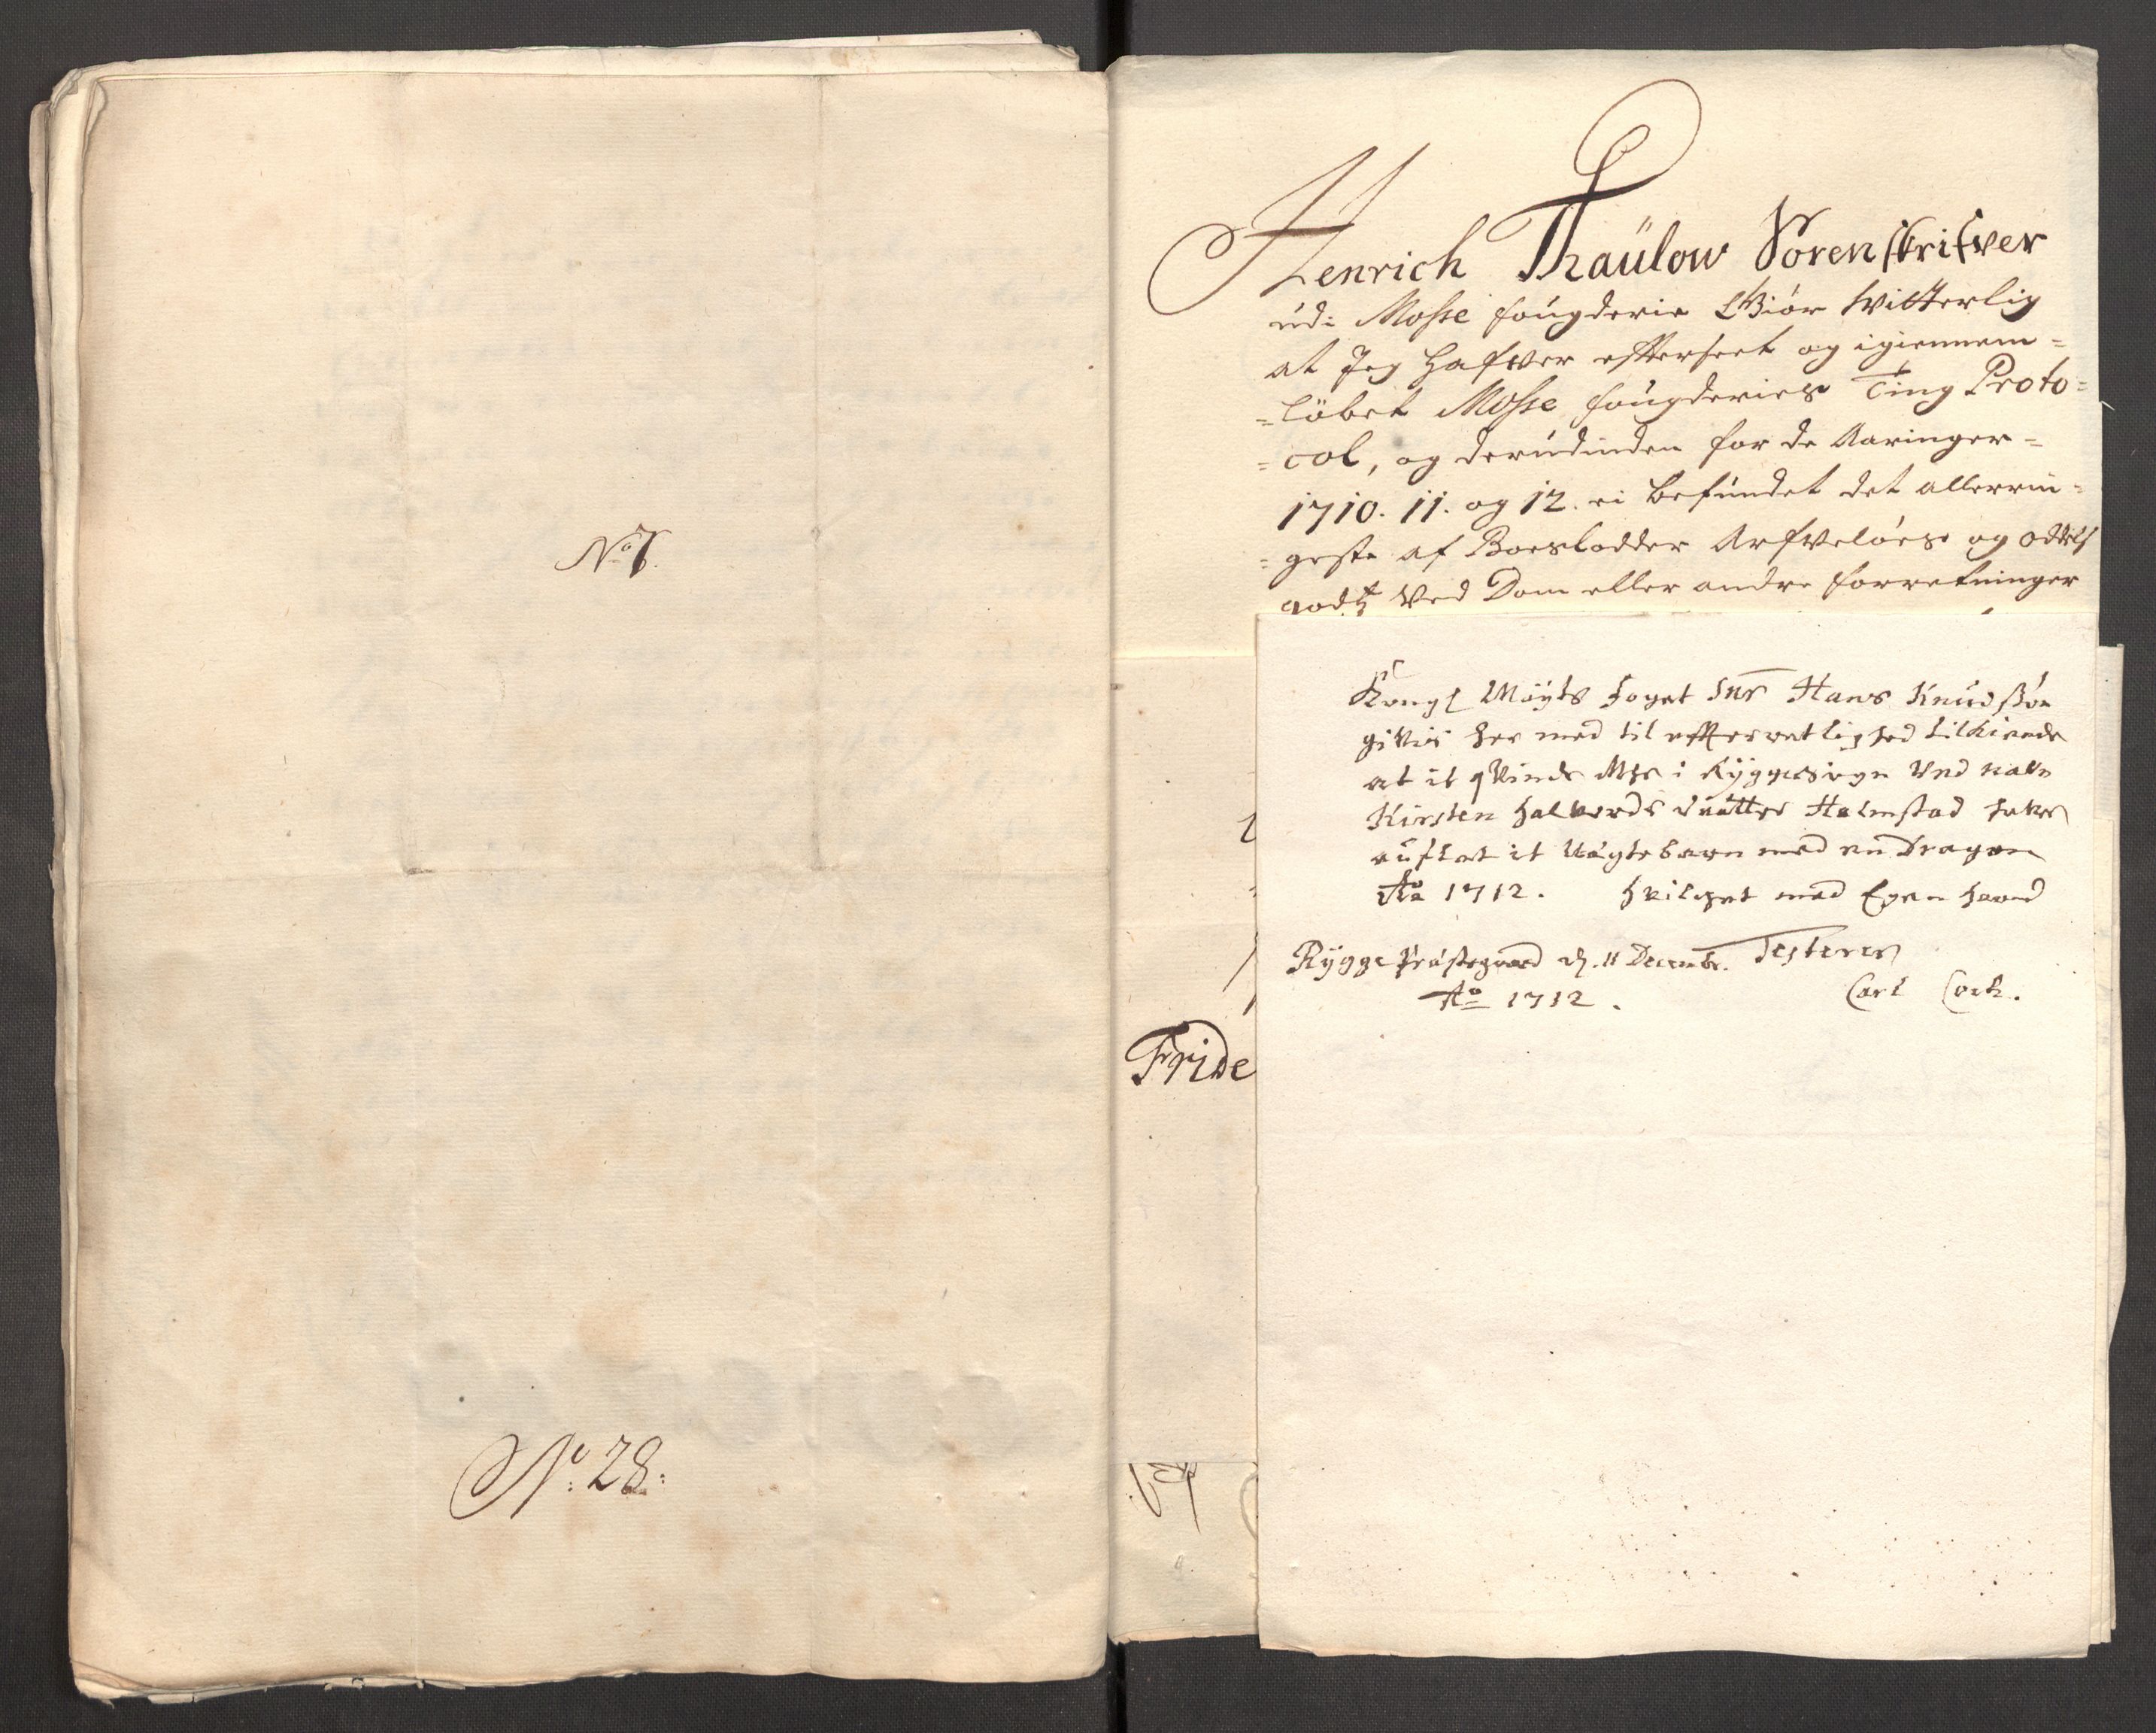 No 7.
No: 28:
Henrich Thaülow Sorenskrifver
üdi Mosse fougderie Giör Witterlig
at Jeg Hafver efterseet og igiennem=
=löbet Mosse fougderies Ting Proto=
=col, og derüdinden for de Aaringer=
1710. 11. og 12. ei befündet det allerrin=
=geste af Boeslodder Arfveløes og Odels
godtz Ved Dom eller andre forretninger
Fride
Kongl Mayts foget Snr Hans Knüdssön
gifvis her med til efterretlighed tilkiende
at it qvinde Mske i Ryggesogn Ved Nafn
Kirsten Halvords daatter Halmstad hafver
aüflet it Uægte barn med en Dragon
Ao 1712. hvilchet med Egen haand
Rygge Præstegaard d. 11 Decembr. Testerer
Ao 1712.
Carl Coch.